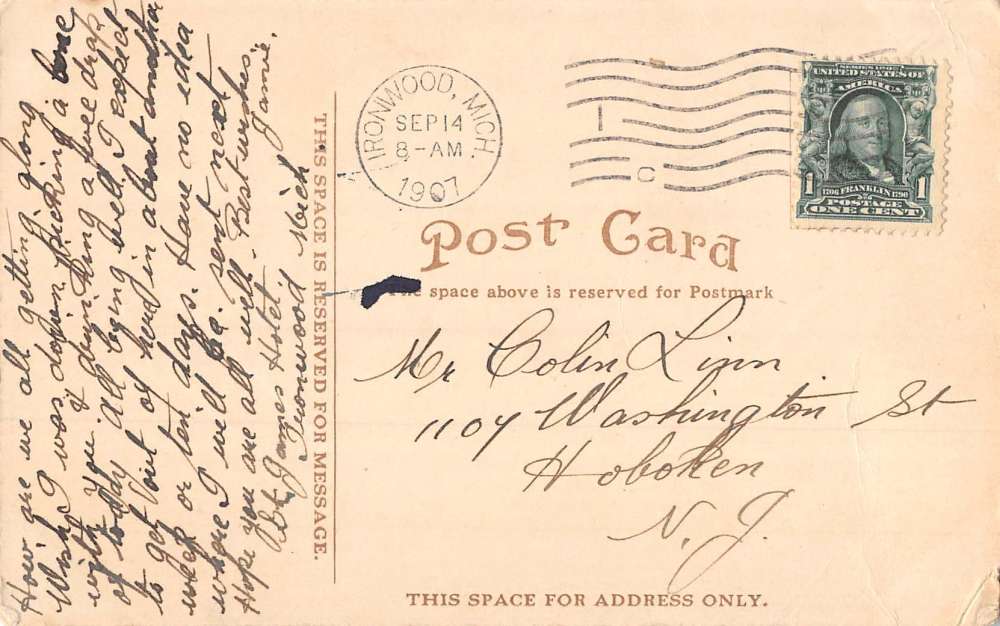 How are we all getting along
Wish I was down picking a bone
with you. & drinking a few drops
of toddy All being well I expect
to get out of here in about another
week or ten days. Have no idea
where I will be sent next
Hope you are all well. Best wishes.
James Hotel, Jamie.
Ironwood Mich
THIS SPACE IS RESERVED FOR MESSAGE.
IRONWOOD, MICH.
SEP 14
8-AM
1907
1
C
SERIES 1902
UNITED STATES OF
AMERICA
1 1
1706 FRANKLIN 1790
POSTAGE
ONE CENT
Post Card
The space above is reserved for Postmark
Mr Colin Linn
1107 Washington St
Hoboken
N. J.
THIS SPACE FOR ADDRESS ONLY.